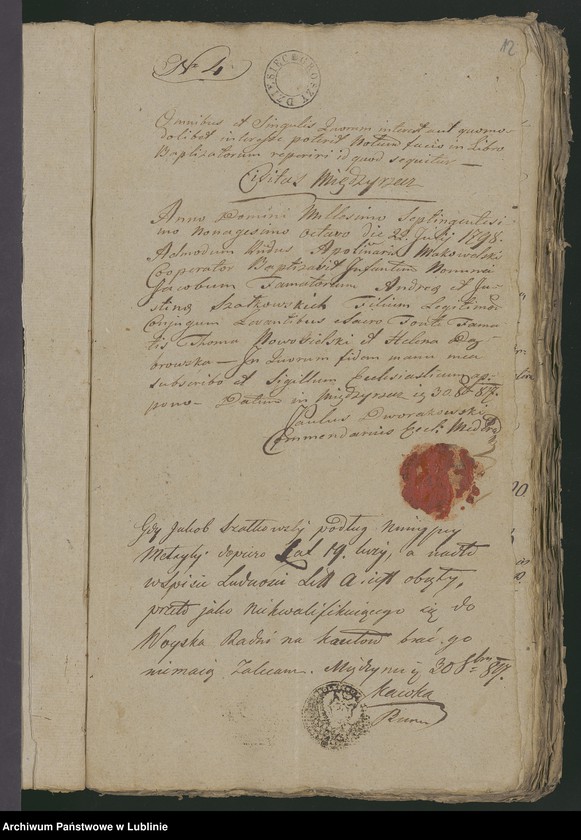 12
No 4.
DZIESIĘĆ GROSZY
Omnibus et Singulis Quorum interest aut quomo-
dolibet interesse poterit Notum facio in Libro
Baptizatorum reperiri id quod sequitur —
Civitas Międzyrzec
Anno Domini Millesimo Septingentesi-
mo Nonagesimo Octavo die 22 Julij 1798.
Admodum Rndus Apolinaris Makowelski
Cooperator Baptizavit Infantem Nomine
Jacobum Famatorum Andrea et Ju-
stina Szatkowskich Filium Legitimor
Conjugum Levantibus Sacro Fonte Fama-
tis Thoma et Helena Dą-
browska — In Quorum fidem manu mea
subscribo et Sigillum Ecclesiasticum ap-
pono — Datum in Międzyrzec
Paulus Dworakowski
Commendarius Eccl:
Gdy Jakob Szatkowski podług
Metryki dopiero Lat 19. liczy, a nadto
w Spisie Ludności Litt A
przeto jako niekwalifikuiącego się do
Woyska Radni na kanton brać go
nie maią Zalecam.
Kawka
Archiwum Państwowe w Lublinie